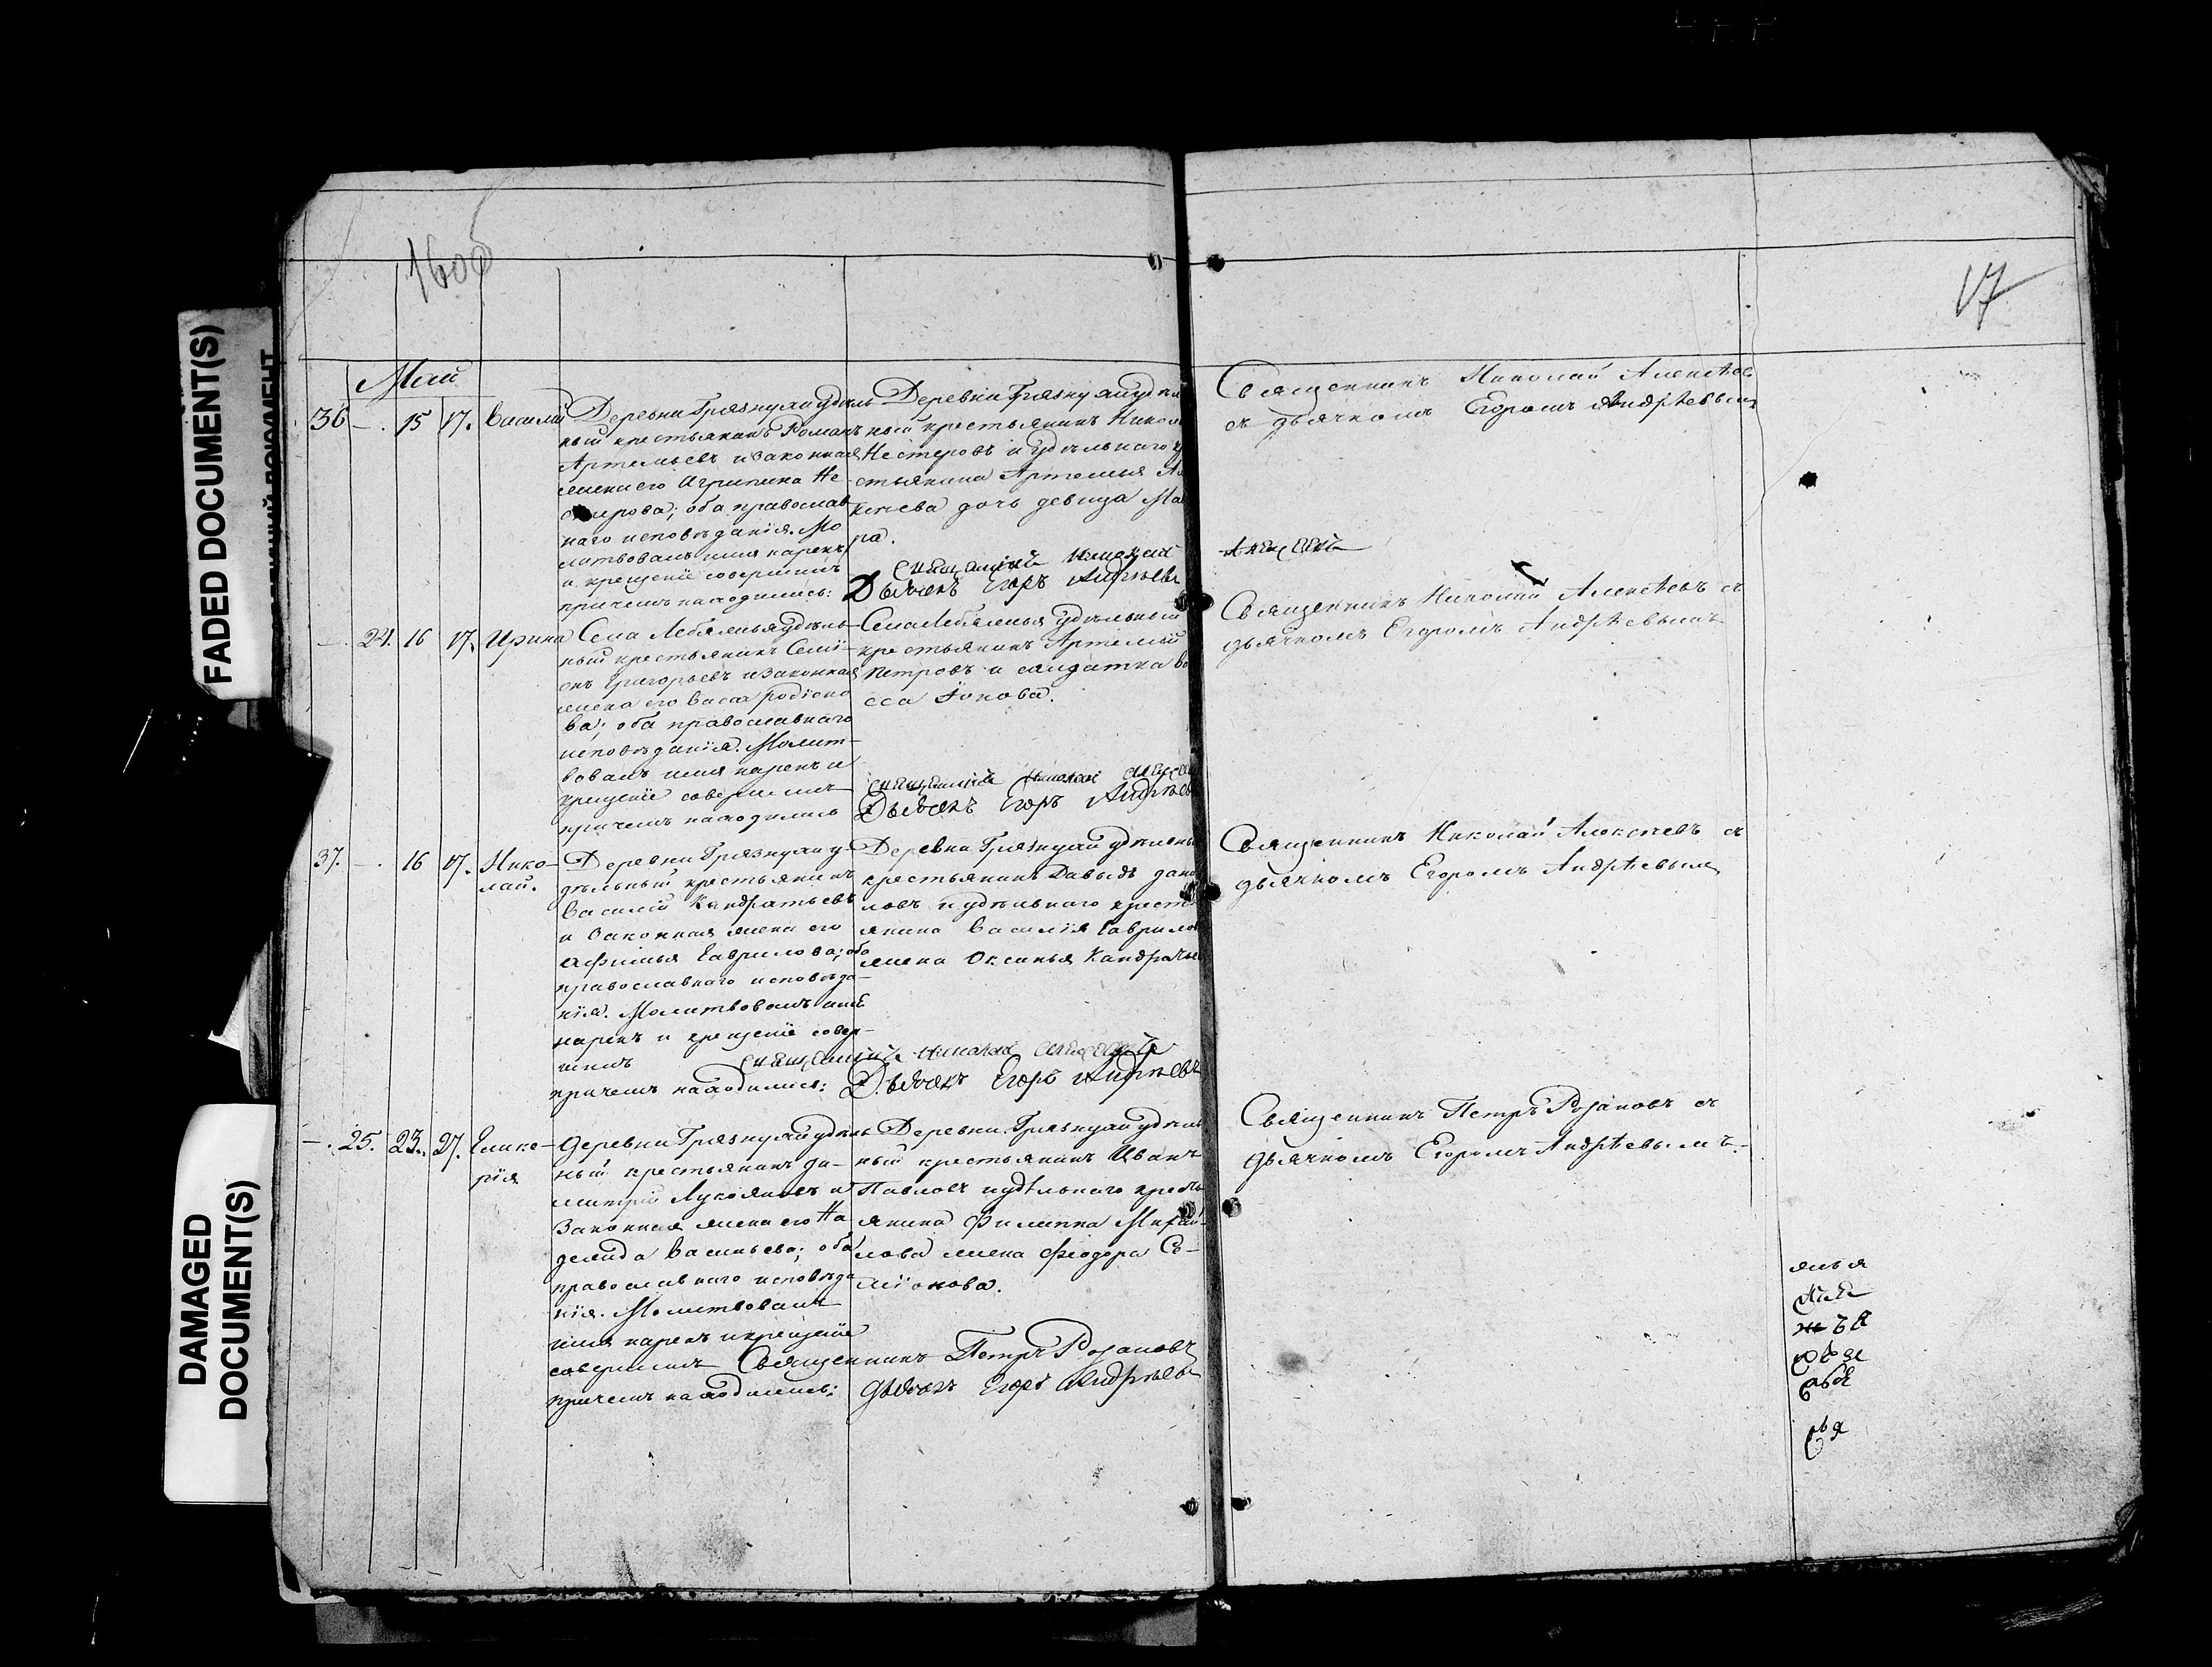 FADED DOCUMENT(S)
DAMAGED
DOCUMENT(S)
17
Май
36 — 15 17. Василій
Деревни Грязнухи удѣль
ный крестьянинъ Романъ
Артемьевъ и законная
жена его Агрипина Не
стерова; оба православ
наго исповѣданія. Мо
литвовалъ имя нарекъ
и крещеніе совершилъ
причемъ находились:
Деревни Грязнухи удѣл
ный крестьянинъ Никол
Нестеровъ и удѣльнаго кр
стьянина Артемья
дочь девица Ма
ра.
Священникъ Николай
Алексеевъ
Дьячекъ Егоръ Андрѣевъ
Священникъ Николай Алексѣев
съ дьячкомъ Егоромъ Андрѣевымъ
— 24. 16 17. Ирина
Села Лебяжья удѣль
ный крестьянинъ Семі
онъ Григорьевъ и законная
жена его Васса Родіоно
ва; оба православнаго
исповѣданія. Молит
вовалъ имя нарекъ и
крещеніе совершилъ
причемъ находились
Села Лебяжья удѣльный
крестьянинъ Артемий
Петровъ и салдатка Ва
сса Іонова.
Священникъ Николай
Дьячекъ Егоръ Андрѣевъ
Священникъ Николай Алексѣевъ съ
дьячкомъ Егоромъ Андрѣевымъ
37. — 16 17. Нико-
лай.
Деревни Грязнухи у-
дѣльный крестьянинъ
Василій Кандратьевъ
и законная жена его
Афимья Гаврилова; оба
православнаго исповѣда-
нія. Молитвовалъ имя
нарекъ и крещеніе совер-
шилъ
причемъ находились:
Деревни Грязнухи удѣльны
крестьянинъ Давыдъ Дани
ловъ и удѣльнаго кресть
янина Василія Гаврилов
жена Оксинья Кандратье
Священникъ Николай Алексеевъ
Дьячекъ Егоръ Андрѣевъ
Священникъ Николай Алексѣевъ съ
дьячкомъ Егоромъ Андрѣевымъ
—. 25. 23. 27. Глике-
рія
Деревни Грязнухи удѣль
ный крестьянинъ Ди-
митрій Лукояновъ и
законная жена его На
дежда Васильева; оба
православнаго исповѣда
нія. Молитвовалъ
имя нарекъ и крещеніе
совершилъ
причемъ находились:
Деревни Грязнухи удѣль
ный крестьянинъ Иванъ
Павловъ и удѣльнаго кресть
янина Филиппа Михай-
лова жена Феодора Се-
міонова.
Священникъ Петръ Розановъ
Дьячекъ Егоръ Андрѣевъ
Священникъ Петръ Розановъ съ
дьячкомъ Егоромъ Андрѣевымъ.